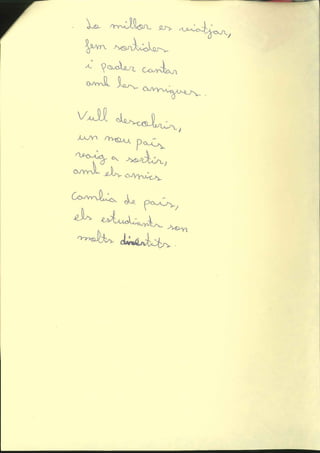 Lo millor es viatjar,
fem sortides
i poder cantar
amb les amigues.
Vull descobrir,
un nou país
vaig a sortir,
amb els amics
Cambia de país,
els estudiants son
molts divertits.